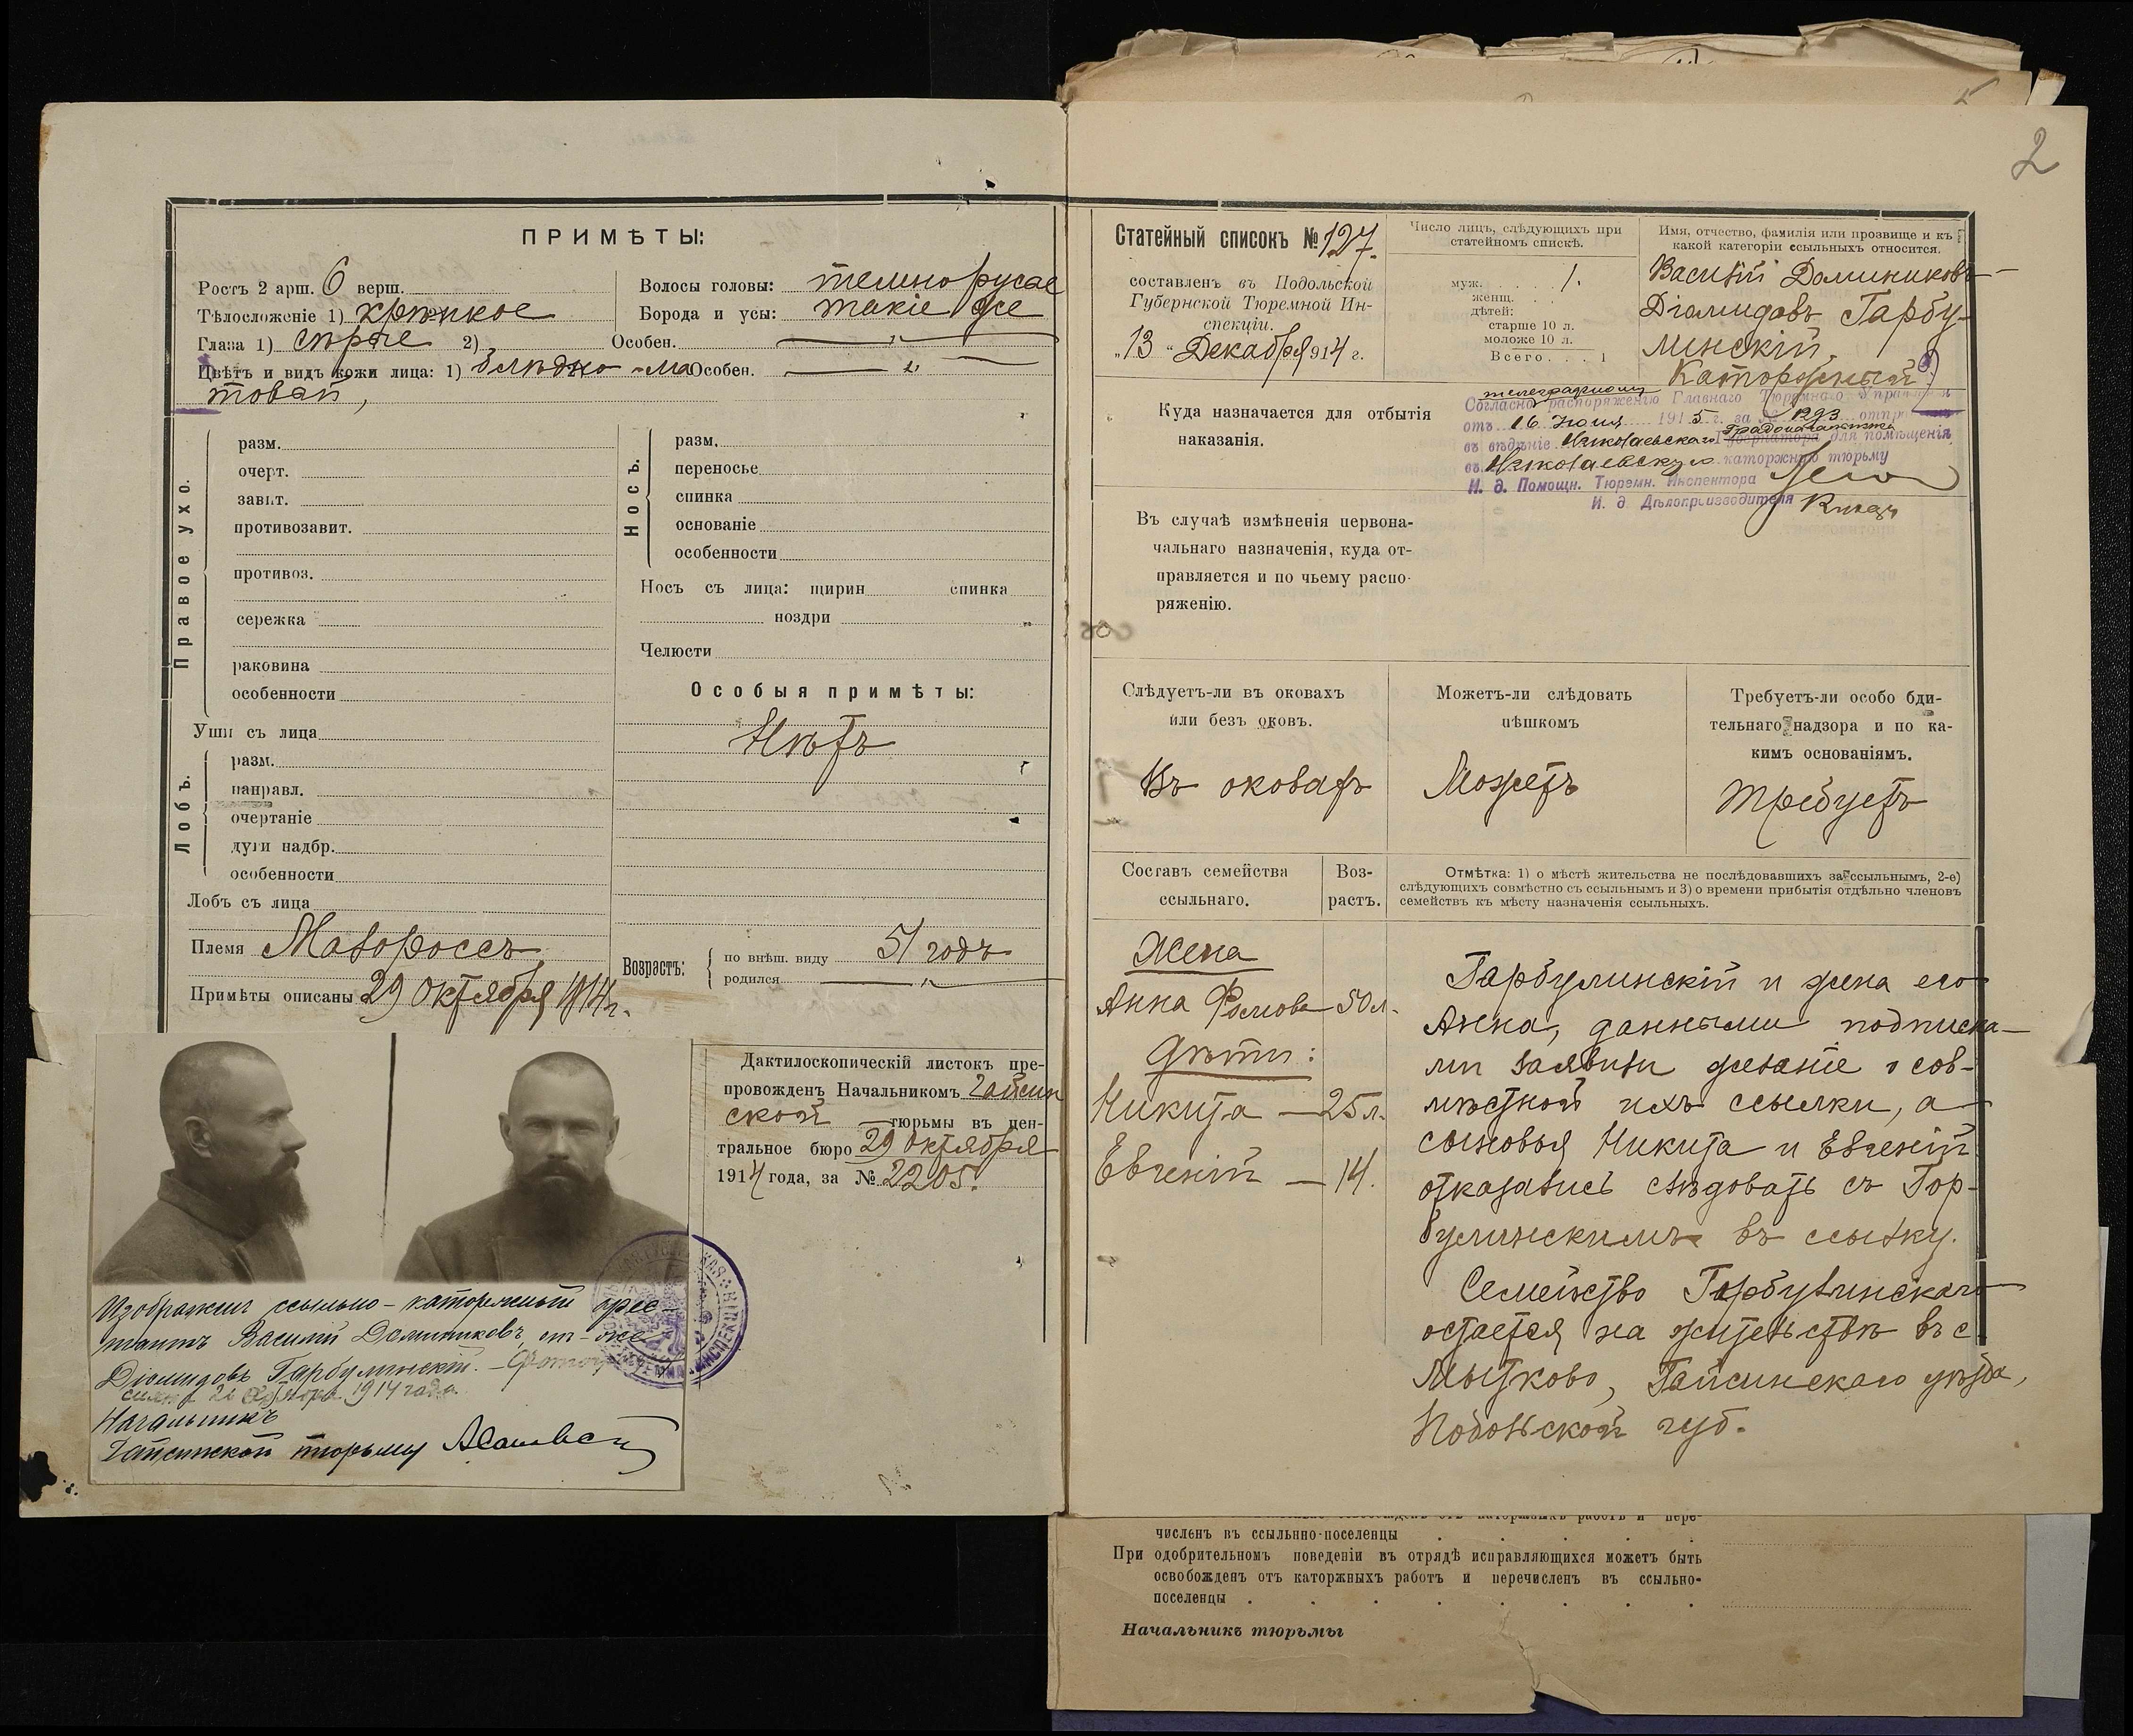 ПРИМѢТЫ:
Ростъ 2 арш. 6 верш.
Тѣлосложеніе 1) крѣпкое
Глаза 1) сѣрые 2) Особен.
Цвѣтъ и видъ кожи лица: 1) блѣдно-ма Особен.
товый,
Волосы головы: темнорусые
Борода и усы: такіе же
Правое ухо.
разм.
очерт.
завит.
противозавит.
противоз.
сережка
раковина
особенности
Уши съ лица
Лобъ.
разм.
направл.
очертаніе
дуги надбр.
особенности
Лобъ съ лица
Племя Малороссъ
Примѣты описаны 29 Октября 1914 г.
Носъ.
разм.
переносье
спинка
основаніе
особенности
Носъ съ лица: ширин спинка
ноздри
Челюсти
Особыя примѣты:
Нѣтъ
Возрастъ:
по внѣш. виду 51 годъ
родился
Дактилоскопическій листокъ пре-
провожденъ Начальникомъ Гайсин
ской тюрьмы въ цен-
тральное бюро 29 Октября
1914 года, за № 2205.
Изображенъ ссыльно-каторжный арес-
тантъ Василій Доминиковъ, онъ-же
Діомидовъ Гарбулинскій.
1914 года.
Начальникъ
Гайсинской тюрьмы
2
Статейный списокъ № 127.
составленъ въ Подольской
Губернской Тюремной Ин-
спекціи.
"13" Декабря 1914 г.
Число лицъ, слѣдующихъ при
статейномъ спискѣ.
муж. . . . 1.
женщ. . .
дѣтей:
старше 10 л.
моложе 10 л.
Всего. . . 1
Имя, отчество, фамилія или прозвище и къ
какой категоріи ссыльныхъ относится.
Василій Доминиковъ-
Діамидовъ Гарбу-
линскій,
Каторжный
Куда назначается для отбытія
наказанія.
телеграфному
Согласно распоряженію Главнаго Тюремнаго Управленія
отъ 16 Іюня 1915 г. за № 1293
Градоначальника
въ вѣдѣніе Николаевскаго Губернатора для помѣщенія
въ Николаевскую каторжную тюрьму
И. д. Помощн. Тюремн. Инспектора
И. д. Дѣлопроизводителя
Въ случаѣ измѣненія первона-
чальнаго назначенія, куда от-
правляется и по чьему распо-
ряженію.
Слѣдуетъ-ли въ оковахъ
или безъ оковъ.
Въ оковахъ
Можетъ-ли слѣдовать
пѣшкомъ
Можетъ
Требуетъ-ли особо бди-
тельнаго надзора и по ка-
кимъ основаніямъ.
Требуетъ
Составъ семейства
ссыльнаго.
Воз-
растъ.
Отмѣтка: 1) о мѣстѣ жительства не послѣдовавшихъ за ссыльнымъ, 2-е)
слѣдующихъ совмѣстно съ ссыльнымъ и 3) о времени прибытія отдѣльно членовъ
семействъ къ мѣсту назначенія ссыльныхъ.
Жена
Анна Фомова - 50 л.
Дѣти:
Никита - 25 л.
Евгеній - 14.
Гарбулинскій и жена его
Анна, данными подписка-
ми заявили желаніе о сов-
мѣстной ихъ ссылки, а
сыновья Никита и Евгеній
отказались слѣдовать съ Гор-
булинскимъ въ ссылку.
Семейство Гарбулинскаго
остается на жительствѣ въ с.
Мытково, Гайсинскаго уѣзда,
Подольской губ.
численъ въ ссыльнно-поселенцы
При одобрительномъ поведеніи въ отрядѣ исправляющихся можетъ быть
освобожденъ отъ каторжныхъ работъ и перечисленъ въ ссыльно-
поселенцы
Начальникъ тюрьмы